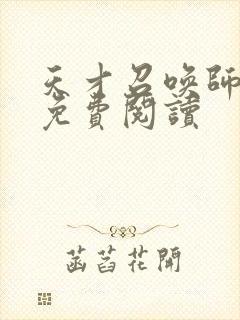 天才召喚師
免費閱讀
菡萏花開